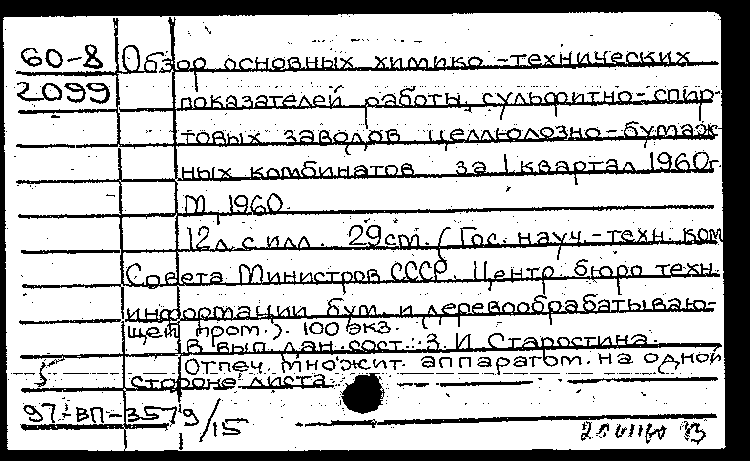 60-8 Обзор основных химико-технических
2099 показателей работы сульфитно-спир-
товых заводов целлюлозно-бумаж-
ных комбинатов за I квартал 1960г.
М, 1960.
12л. с илл. 29cm. (Гос. науч.-техн. ком
Совета Министров СССР. Центр. бюро техн.
информации бум. и деревообрабатываю-
щей пром.). 100 экз.
В вып. дан. сост.: З. И. Старостина.
Отпеч. множит. аппаратом на одной
стороне листа
97-ВП-3579/15